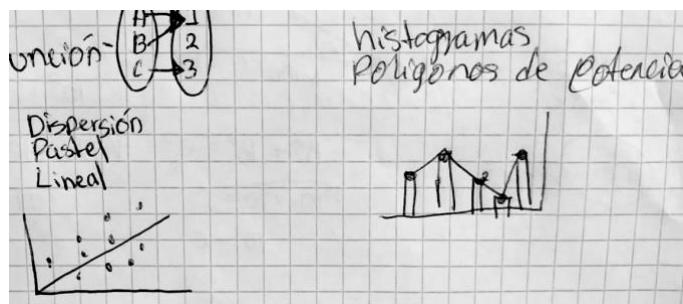 unción-
A 1
B 2
C 3
histogramas
Poligonos de Potencia
Dispersión
Pastel
Lineal